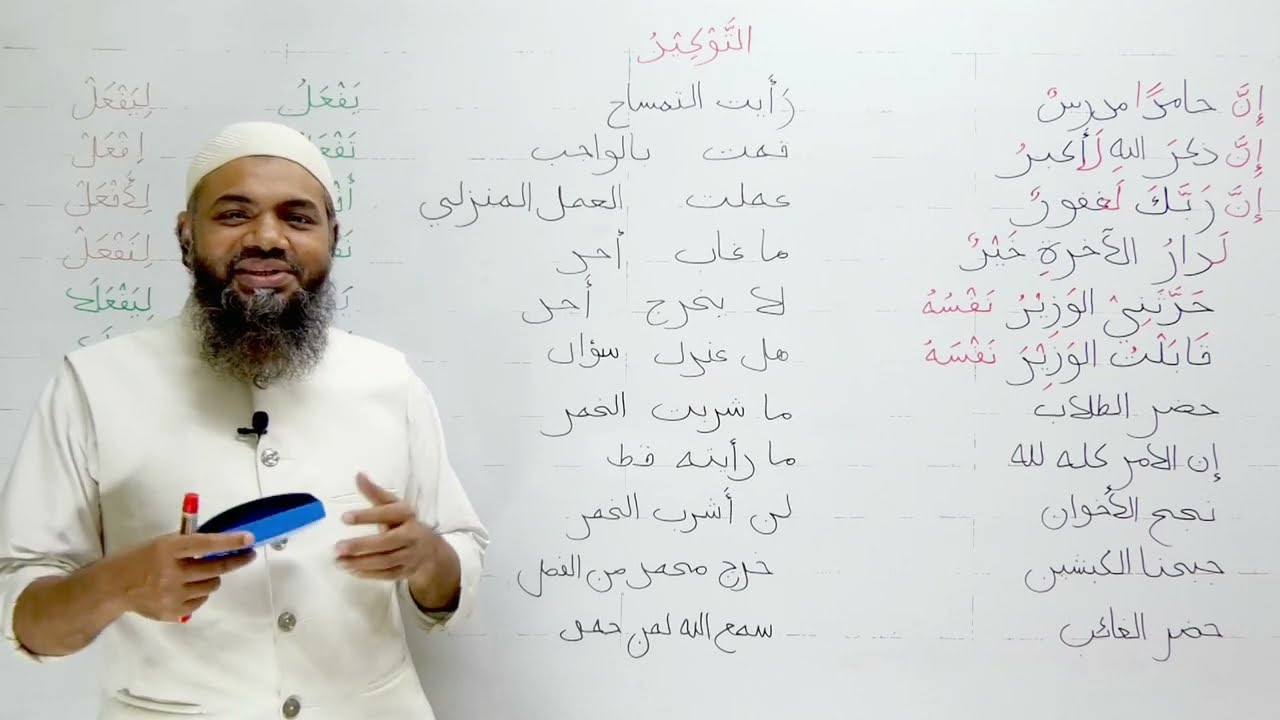 التَّوْكِيْدُ
إِنَّ حامدًا مدرسٌ
إِنَّ ذكرَ اللهِ لَأكبرُ
إِنَّ رَبَّكَ لَغفورٌ
لَدارُ الآخرةِ خَيْرٌ
حَدَّثَنِيْ الوَزِيْرُ نَفْسُهُ
قَابَلْتُ الوَزِيْرَ نَفْسَهُ
حضر الطلاب
إن الأمر كله لله
نجح الأخوان
الكبشين
حضر الغائب
رَأيت التمساح
قمت بالواجب
عملت العمل المنزلي
ما غاب أحد
لا يخرج أحد
هل عندك سؤال
ما شربت الخمر
ما رأيته قط
لن أشرب الخمر
خرج محمد من الفصل
سمع الله لمن حمد
يَفْعَلُ
لِيَفْعَلْ
اِفْعَلْ
لِأَفْعَلْ
لِنَفْعَلْ
لِيَفْعَلَا